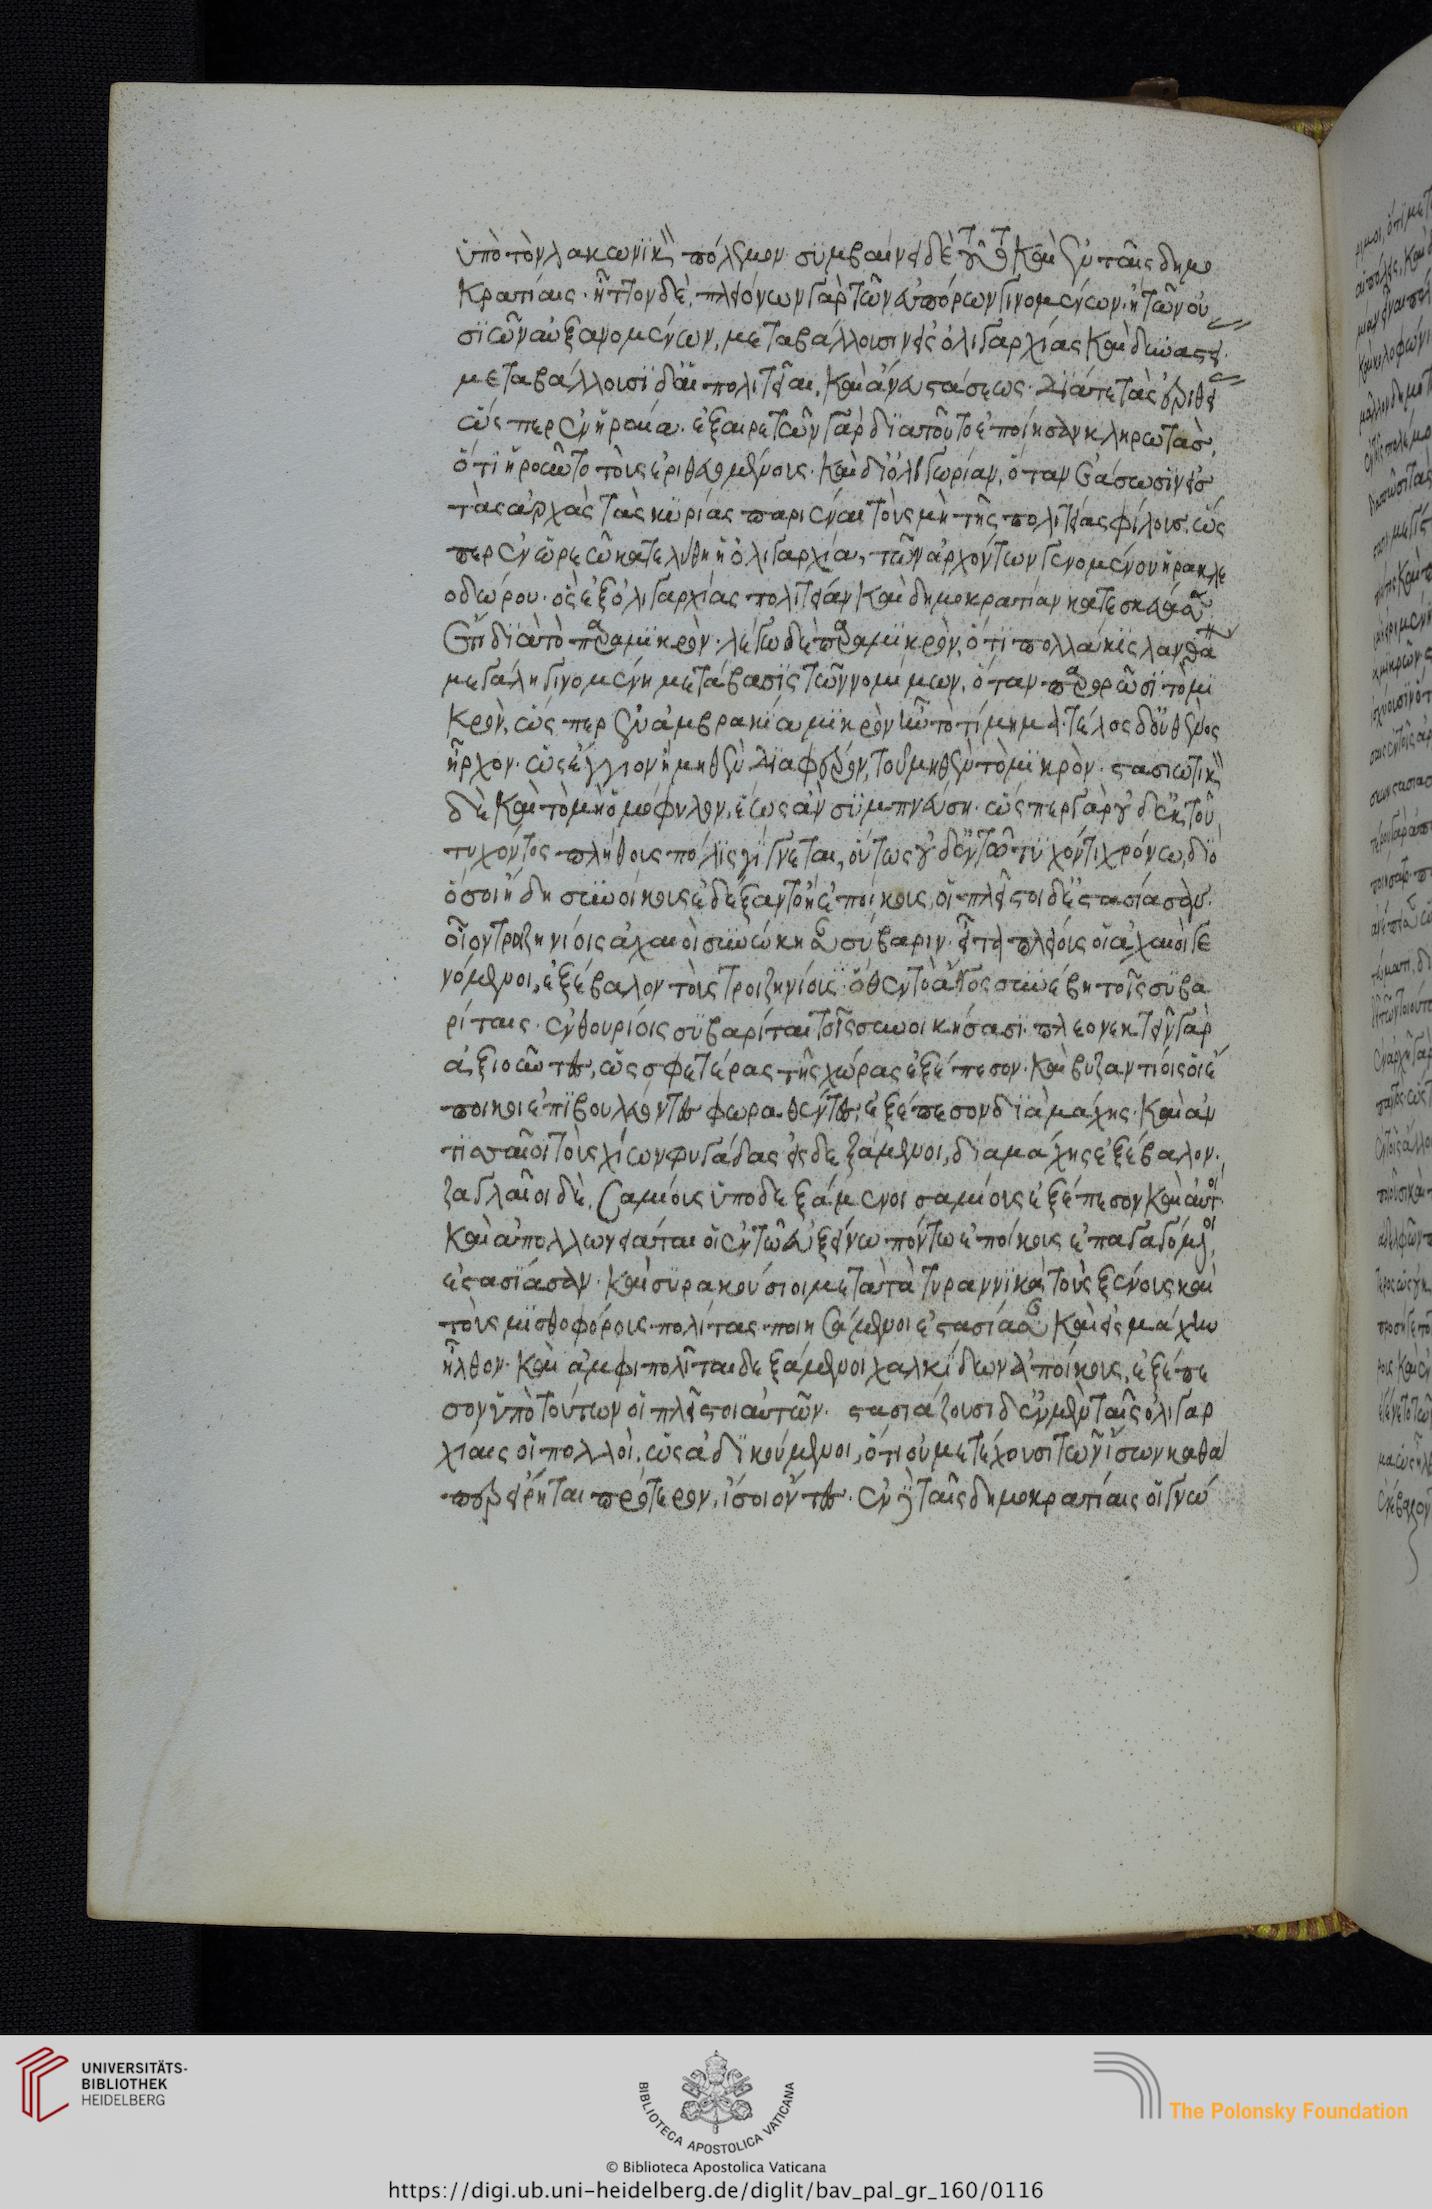 ὑπὸ τὸν λακωνικὸν πόλεμον. συμβαίνει δὲ τοῦτο καὶ ἐν ταῖς δημο
κρατίαις. ἧττον δέ. πλειόνων γὰρ τῶν ἀπόρων γινομένων. ἢ τῶν οὐ
σιῶν αὐξανομένων, μεταβάλλουσιν εἰς ὀλιγαρχίας καὶ δυναστεί
μεταβάλλουσι δ' αἱ πολιτεῖαι, καὶ ἄνευ στάσεως. διά τε τὰς ἐριθεί
ὥσπερ ἐν ἡραία. ἐξ αἱρετῶν γὰρ διὰ τοῦτο ἐποίησαν κληρωτὰς,
ὅτι ᾑροῦντο τοὺς ἐριθευομένους. καὶ δι' ὀλιγωρίαν, ὅταν ἐάσωσιν εἰς
τὰς ἀρχὰς τὰς κυρίας παριέναι τοὺς μὴ τῆς πολιτείας φίλους. ὥς
περ ἐν ὠρεῷ κατελύθη ἡ ὀλιγαρχία, τῶν ἀρχόντων γενομένου ἡρακλε
οδώρου. ὃς ἐξ ὀλιγαρχίας πολιτείαν καὶ δημοκρατίαν κατεσκεύασεν
ἔτι διὰ τὸ παραμικρὸν. λέγω δὲ παραμικρὸν, ὅτι πολλάκις λανθάνει
μεγάλη γινομένη μετάβασις τῶν νομίμων, ὅταν παρορῶσι τὸ μι
κρὸν, ὥσπερ ἐν ἀμβρακία μικρὸν ἦν τὸ τίμημα. τέλος δ' οὐθενὸς
ἦρχον. ὡς ἔγγιον ἢ μηθὲν διαφέρον, τοῦ μηθὲν τὸ μικρὸν. στασιωτικὸν
δὲ καὶ τὸ μὴ ὁμόφυλον, ἕως ἂν συμπνεύση. ὥσπερ γὰρ οὐδ' ἐκ τοῦ
τυχόντος πλήθους πόλις γίγνεται, οὕτως οὐδ' ἐν τῶ τυχόντι χρόνω, διὸ
ὅσοι ἤδη συνοίκους ἐδέξαντο ἢ ἐποίκους, οἱ πλεῖστοι διεστασίασαν.
οἷον τροιζηνίοις ἀχαιοὶ συνώκησαν σύβαριν. εἶτα πλείους οἱ ἀχαιοὶ γε
νόμενοι, ἐξέβαλον τοὺς τροιζηνίους. ὅθεν τὸ ἄγος συνέβη τοῖς συβα
ρίταις. ἐν θουρίοις συβαρῖται τοῖς συνοικήσασι. πλεονεκτεῖν γὰρ
ἀξιοῦντες, ὡς σφετέρας τῆς χώρας ἐξέπεσον. καὶ βυζαντίοις οἱ ἔ
ποικοι ἐπιβουλεύοντες φωραθέντες, ἐξέπεσον διὰ μάχης. καὶ ἀν
τισσαῖοι τοὺς χίων φυγάδας εἰσδεξάμενοι, διὰ μάχης ἐξέβαλον.
ζαγκλαῖοι δὲ, σαμίους ὑποδεξάμενοι σαμίους ἐξέπεσον καὶ αὐτοὶ
καὶ ἀπολλωνιᾶται οἱ ἐν τῶ εὐξείνω πόντω ἐποίκους ἐπαγαγόμενοι,
ἐστασίασαν. καὶ συρακούσιοι μετὰ τὰ τυραννικὰ τοὺς ξένους καὶ
τοὺς μισθοφόρους πολίτας ποιησάμενοι ἐστασίασαν καὶ εἰς μάχην
ἦλθον. καὶ ἀμφιπολῖται δεξάμενοι χαλκιδέων ἀποίκους, ἐξέπε
σον ὑπὸ τούτων οἱ πλεῖστοι αὐτῶν. στασιάζουσι δ' ἐν μὲν ταῖς ὀλιγαρ
χίαις οἱ πολλοὶ, ὡς ἀδικούμενοι, ὅτι οὐ μετέχουσι τῶν ἴσων καθά
περ εἴρηται πρότερον, ἴσοι ὄντες. ἐν δὲ ταῖς δημοκρατίαις οἱ γνώ
UNIVERSITÄTS-
BIBLIOTHEK
HEIDELBERG
BIBLIOTECA APOSTOLICA VATICANA
The Polonsky Foundation
© Biblioteca Apostolica Vaticana
https://digi.ub.uni-heidelberg.de/diglit/bav_pal_gr_160/0116